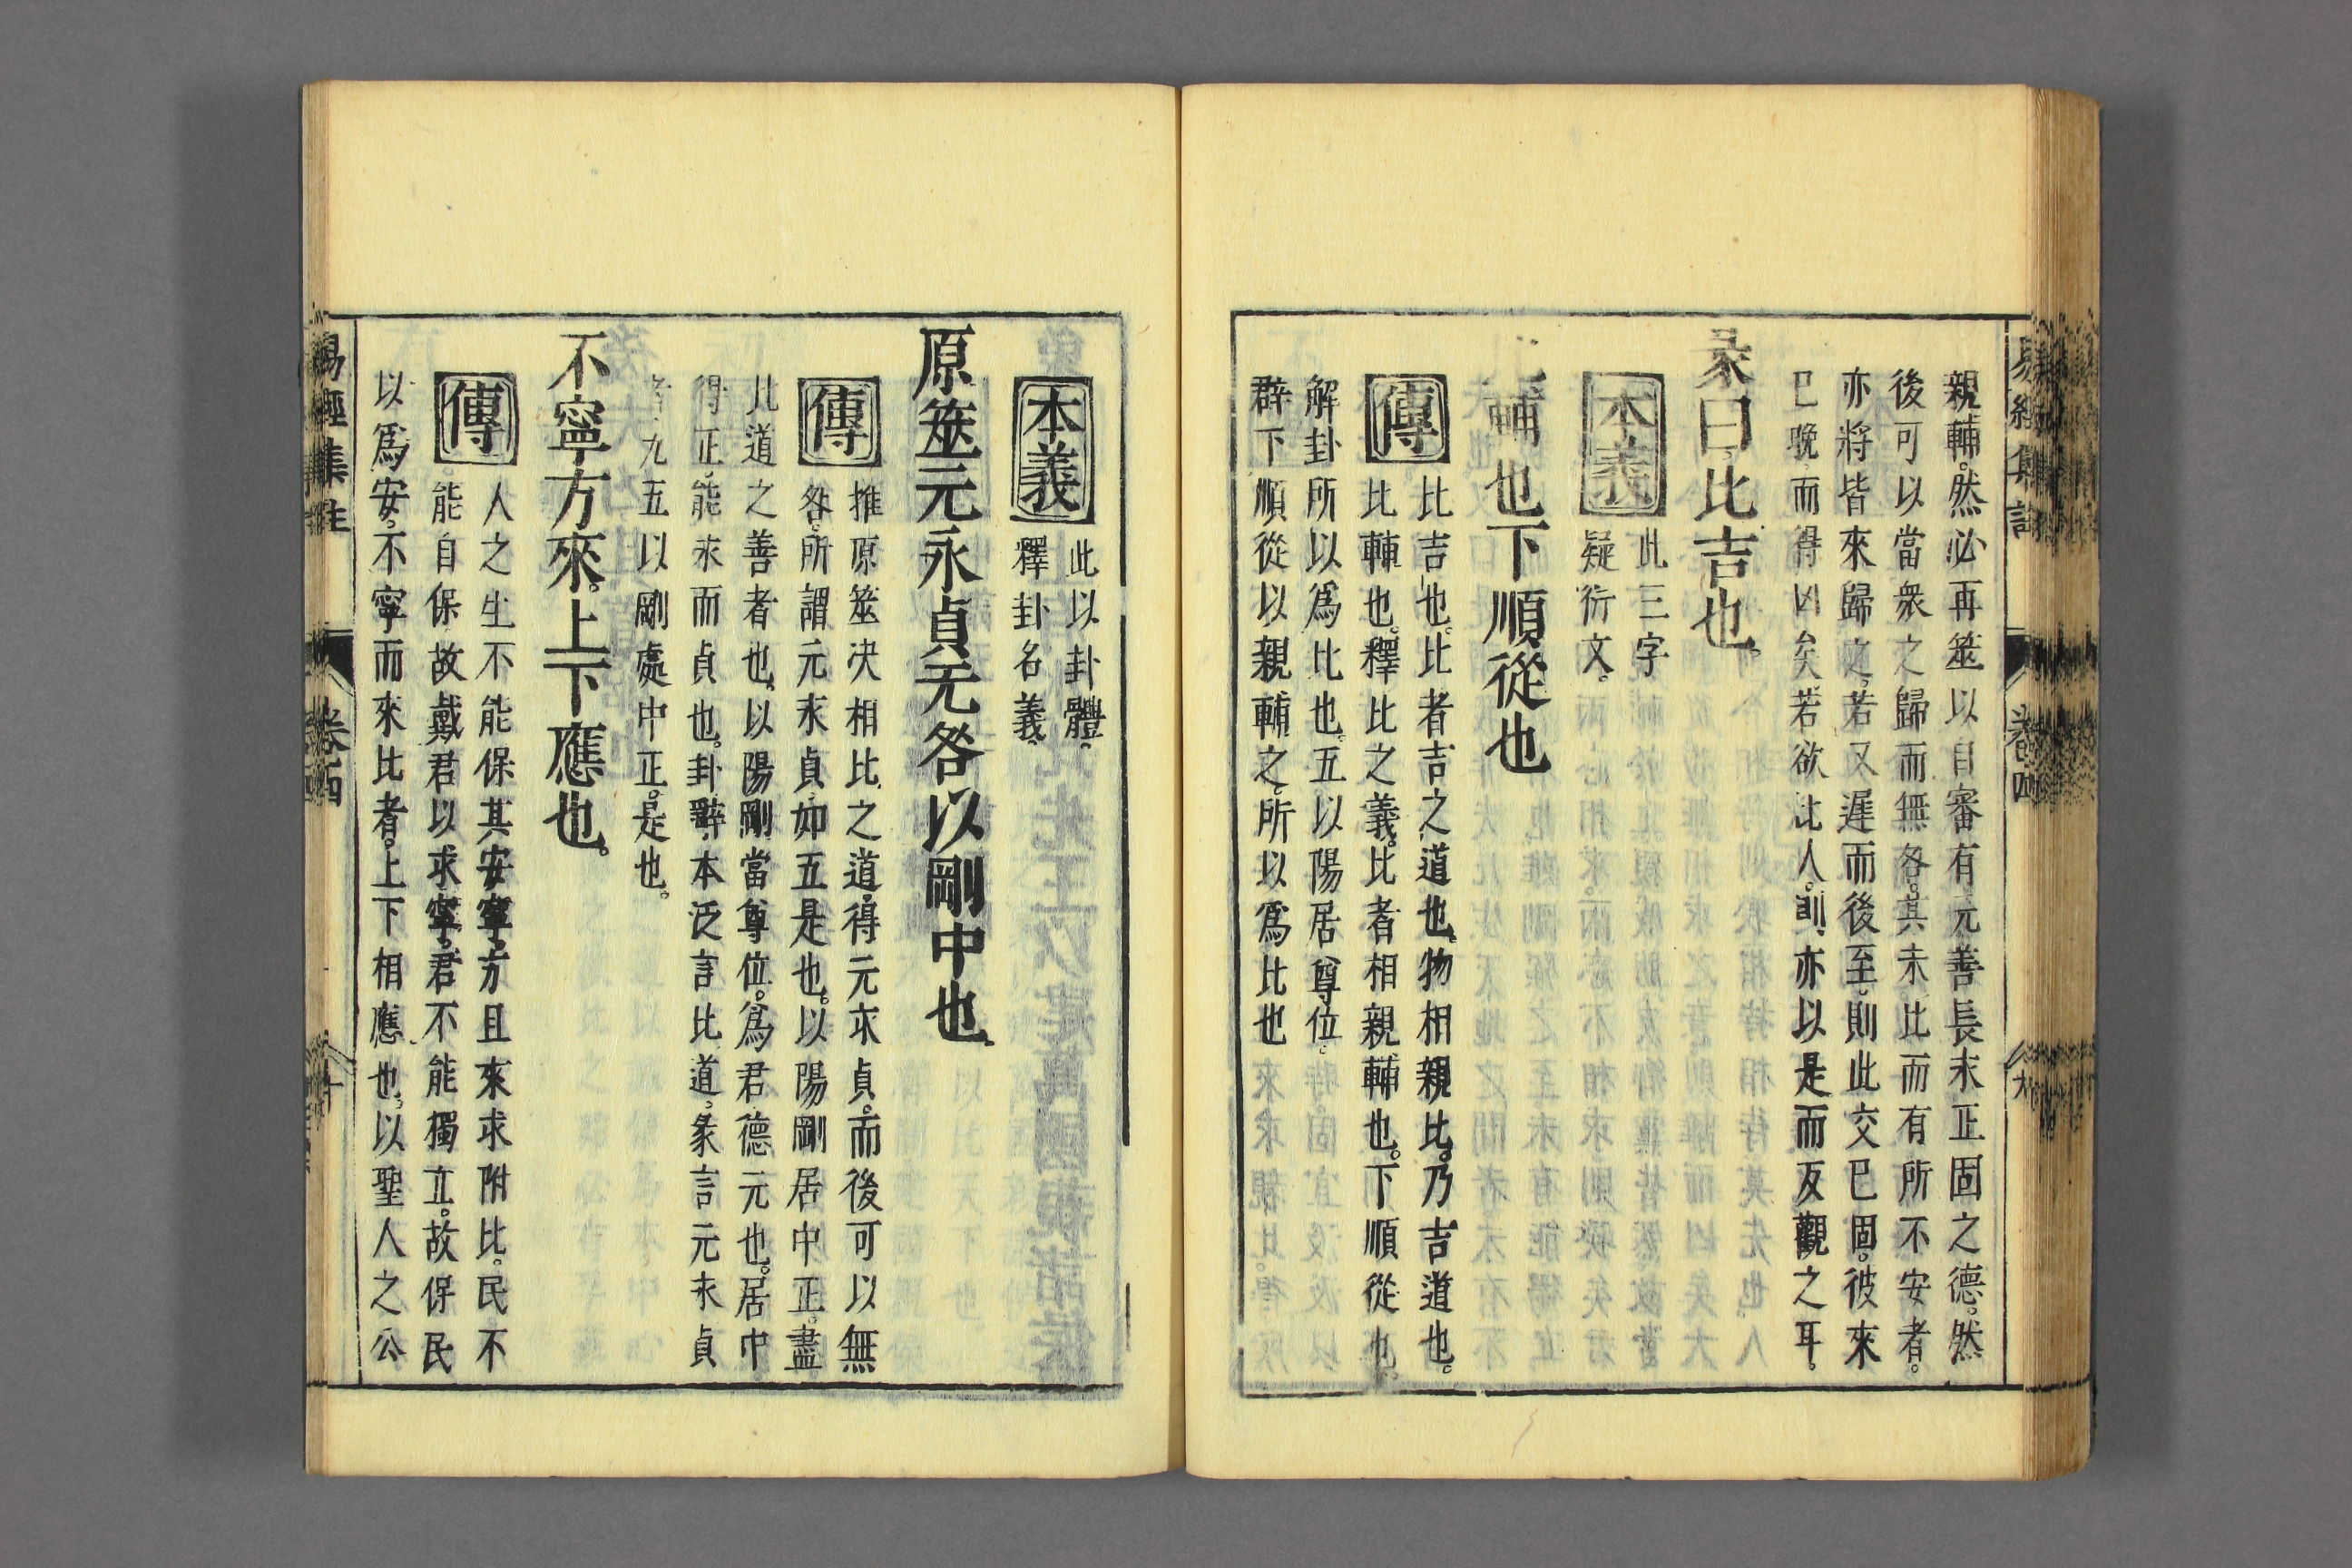 易經集註 卷四
親輔。然必再筮以自審有元善長永正固之德。然
後可以當衆之歸而無咎。其未比而有所不安者。
亦將皆來歸之。若又遲而後至。則此交已固。彼來
已晚。而得凶矣。若欲比人。則亦以是而反觀之耳。
彖曰。比吉也。
本義
此三字
疑衍文。
輔也下順從也
傳
比吉也。比者吉之道也。物相親比。乃吉道也。
比輔也。釋比之義。比者相親輔也。下順從也。
解卦所以爲比也。五以陽居尊位。
群下順從以親輔之。所以爲比也
本義
此以卦體。
釋卦名義。
原筮元永貞无咎以剛中也。
傳
推原筮決相比之道。得元永貞。而後可以無
咎。所謂元永貞。如五是也。以陽剛居中正。盡
比道之善者也。以陽剛當尊位。爲君德元也。居中
得正。能永而貞也。卦辭本泛言比道。彖言元永貞
者。九五以剛處中正。是也。
不寧方來。上下應也。
傳
人之生不能保其安寧。方且來求附比。民不
能自保。故戴君以求寧。君不能獨立。故保民
以爲安。不寧而來比者。上下相應也。以聖人之公
易經集註 卷四